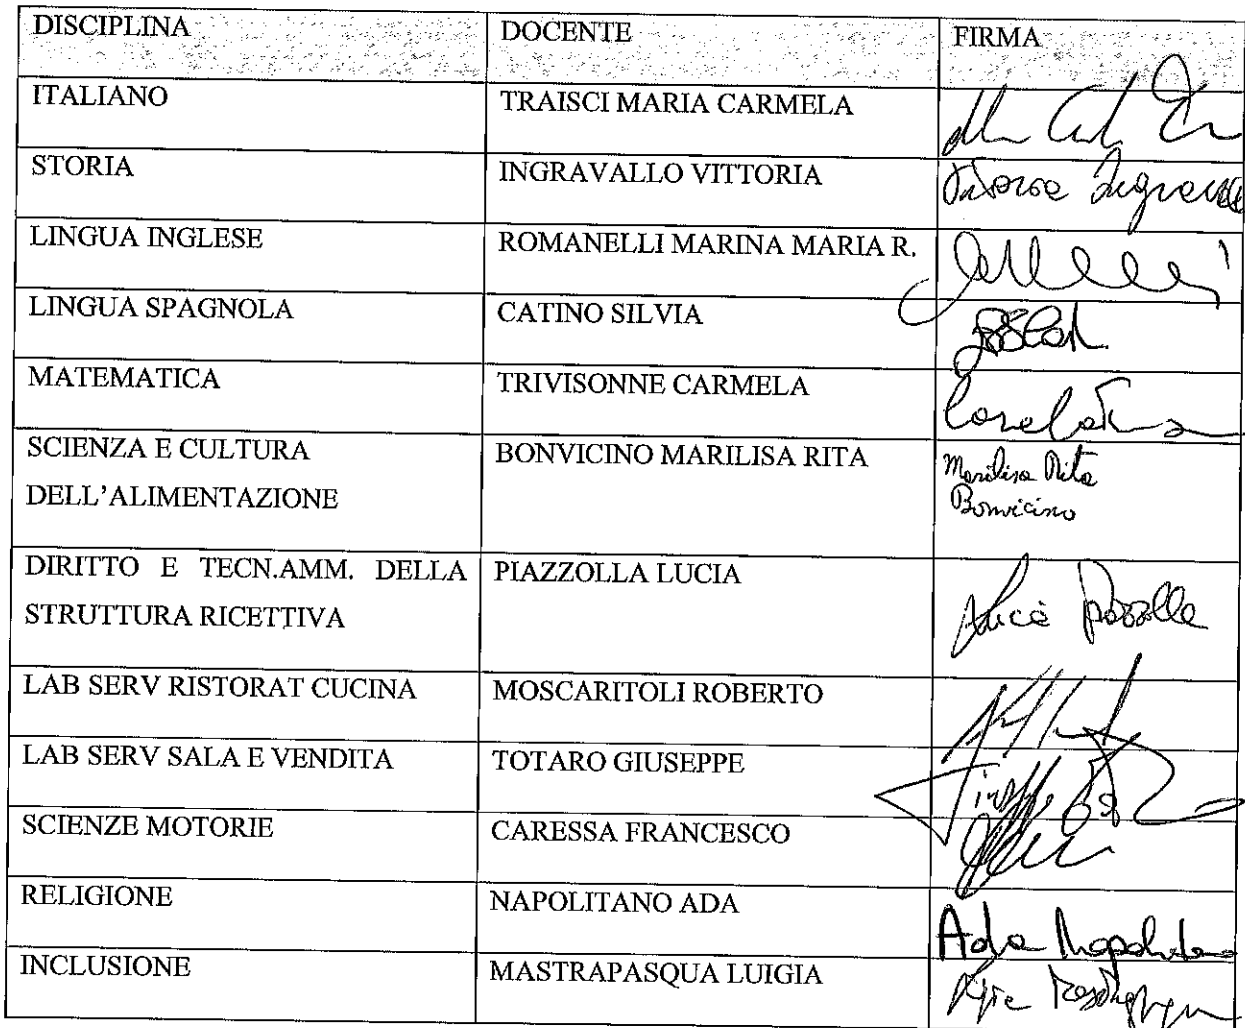 DISCIPLINA DOCENTE FIRMA
ITALIANO TRAISCI MARIA CARMELA
STORIA INGRAVALLO VITTORIA
LINGUA INGLESE ROMANELLI MARINA MARIA R.
LINGUA SPAGNOLA CATINO SILVIA
MATEMATICA TRIVISONNE CARMELA
SCIENZA E CULTURA BONVICINO MARILISA RITA Marilisa Rita
DELL'ALIMENTAZIONE Bonvicino
DIRITTO E TECN.AMM. DELLA PIAZZOLLA LUCIA
STRUTTURA RICETTIVA
LAB SERV RISTORAT CUCINA MOSCARITOLI ROBERTO
LAB SERV SALA E VENDITA TOTARO GIUSEPPE
SCIENZE MOTORIE CARESSA FRANCESCO
RELIGIONE NAPOLITANO ADA Ada Napolitano
INCLUSIONE MASTRAPASQUA LUIGIA